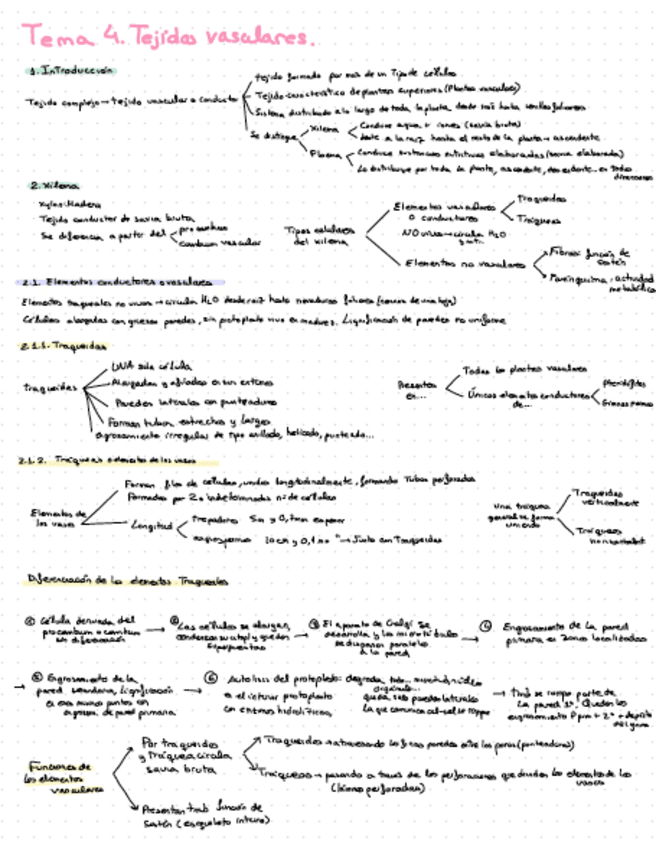 Tema 4. Tejidos vasculares.
1. Introducción
Tejido formado por más de un tipo de células
Tejido complejo → tejido vascular o conductor
Tejido característico de plantas superiores (Plantas vasculares)
Sistema distribuido a lo largo de toda la planta, desde raíz hasta
Se distingue
Xilema
Conduce agua + iones (savia bruta)
desde la raíz hasta el resto de la planta → ascendente
Floema
Conduce sustancias nutritivas elaboradas (savia elaborada)
Lo distribuye por toda la planta, ascendente, descendente.. en todas direcciones
2. Xilema
Xylos: Madera
Tejido conductor de savia bruta
Se diferencia a partir del
procambium
cambium vascular
Tipos celulares del xilema
Elementos vasculares o conductores
NO vivos → circula H2O
Traqueidas
Tráqueas
Elementos no vasculares
Fibras: función de sostén
Parénquima: actividad metabólica
2.1. Elementos conductores o vasculares
Elementos traqueales no vivos → circulan H2O desde raíz hasta nervaduras foliares
Células alargadas con gruesas paredes, sin protoplasto vivo en madurez. Lignificación de paredes no uniforme
2.1.1. Traqueidas
Traqueidas
UNA sola célula
Alargadas y afiladas en sus extremos
Paredes laterales con punteaduras
Forman tubos estrechos y largos
Engrosamiento irregular de tipo anillado, helicado, punteado...
Presentes en...
Todas las plantas vasculares
Únicos elementos conductores de...
Pteridofitas
Gimnospermas
2.1.2. Tráqueas o elementos de los vasos
Elementos de los vasos
Forman filas de células, unidas longitudinalmente, formando tubos perforados
Formados por 2 o indeterminados nº de células
Longitud
trepadoras 5m y 0,7mm
10cm y 0,1mm → Junto con Traqueidas
Una tráquea
Traqueidas verticalmente
Tráqueas horizontalmente
Diferenciación de los elementos Traqueales
① Célula derivada del procambium o cambium en diferenciación
→ ② Las células se alargan,
→ ③ El aparato de Golgi se desarrolla y los microtúbulos se disponen paralelos a la pared
→ ④ Engrosamiento de la pared primaria en zonas localizadas
→ ⑤ Engrosamiento de la pared secundaria, lignificación
pared primaria
→ ⑥ Autolisis del protoplasto: degrada
con enzimas hidrolíticas
→ Tmb se rompe parte de la pared 1ª. Quedan los engrosamientos
Funciones de los elementos vasculares
Por traqueidas y tráqueas circula savia bruta
Traqueidas → atravesando las finas paredes entre los poros (punteaduras)
Tráqueas → pasando a través de las perforaciones que dividen los elementos de los vasos
Presentan tmb función de sostén (esqueleto interno)